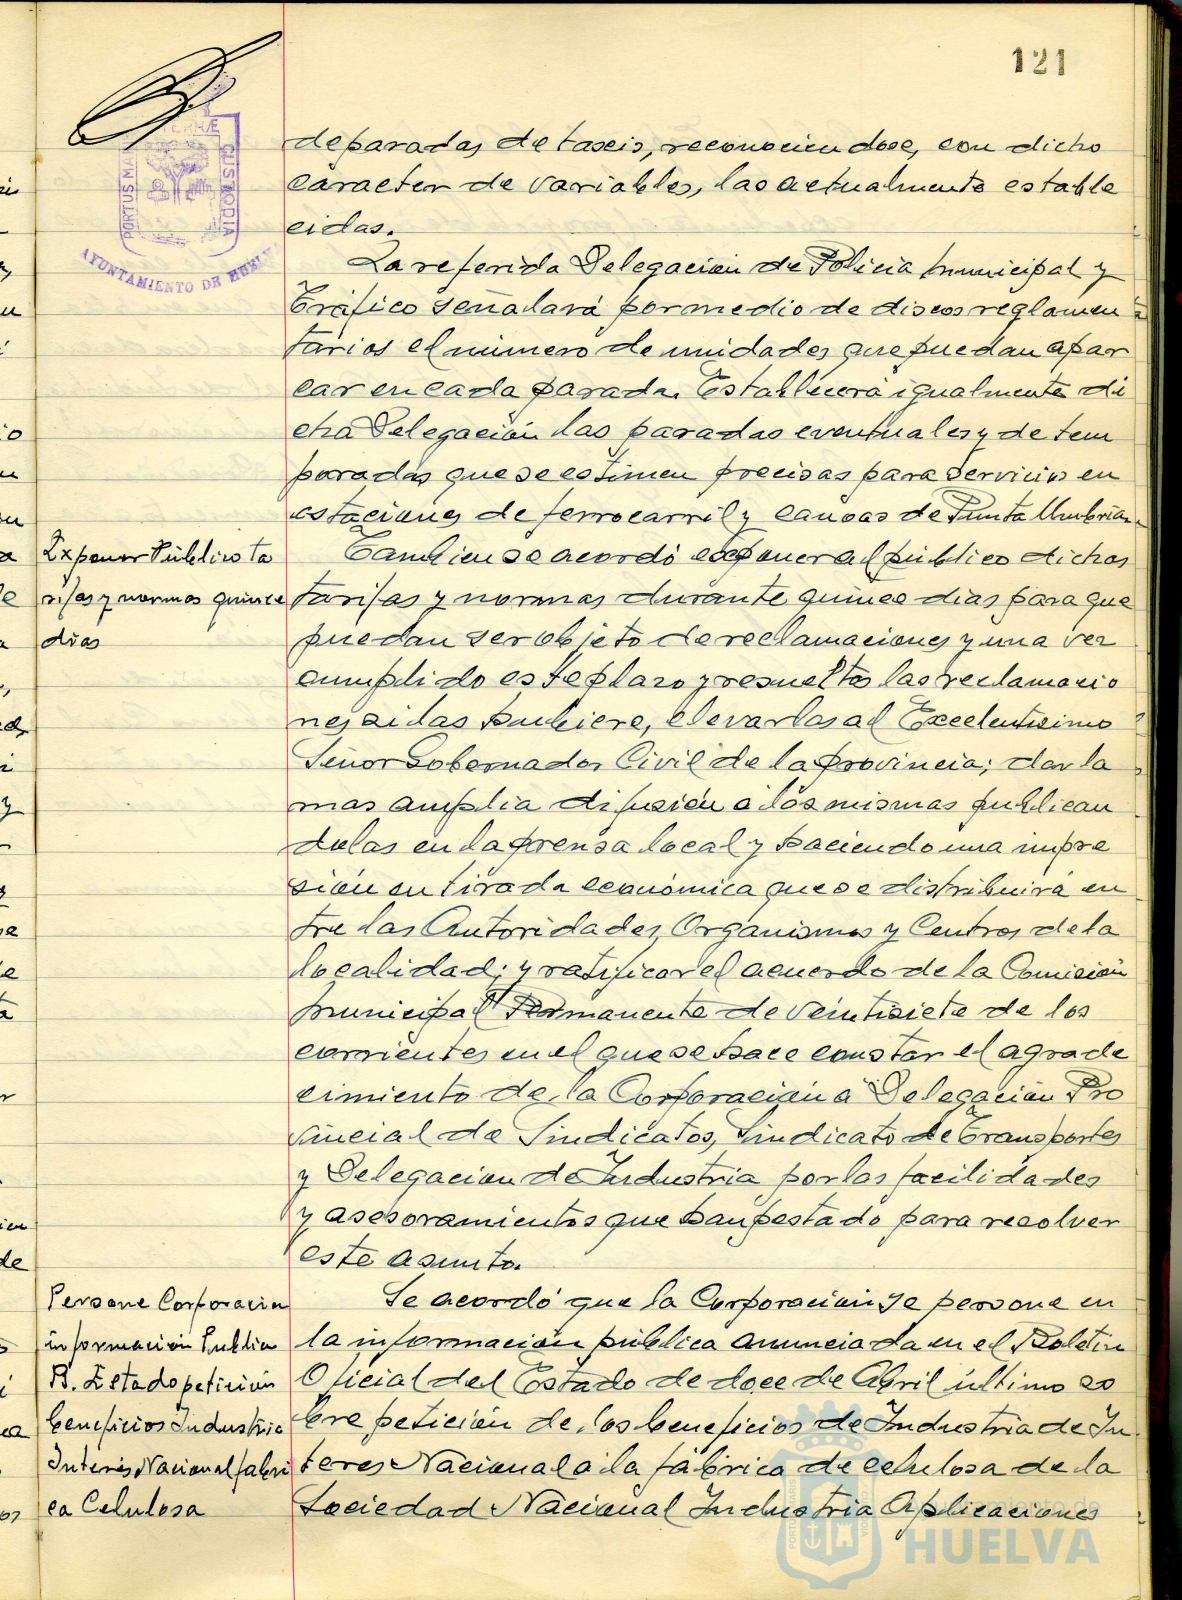 121
PORTUS MA
CUSTODIA
AYUNTAMIENTO DE HUELV
de paradas de taxis, reconociendose, con dicho
caracter de variables, las actualmente estable
cidas.
La referida Delegación de Policía Municipal y
Tráfico señalará por medio de discos reglamen
tarios el número de unidades que puedan apar
car en cada parada. Establecerá igualmente di
cha Delegación las paradas eventuales y de tem
poradas que se estimen precisas para servicio en
estaciones de ferrocarril y canoas de Punta Umbría.
Exponer Público ta
rifas y normas quince
dias
Tambien se acordó exponer al público dichas
tarifas y normas durante quince dias para que
puedan ser objeto de reclamaciones y una vez
cumplido este plazo y resueltas las reclamacio
nes si las hubiere, elevarlas al Excelentísimo
Señor Gobernador Civil de la provincia; dar la
mas amplia difusión a las mismas publican
dolas en la prensa local y haciendo una impre
sión en tirada económica que se distribuirá en
tre las Autoridades, Organismos y Centros de la
localidad; y ratificar el acuerdo de la Comisión
Municipal Permanente de veintisiete de los
corrientes en el que se hace constar el agrade
cimiento de la Corporación a Delegación Pro
vincial de Sindicatos, Sindicato de Transportes
y Delegacion de Industria por las facilidades
y asesoramientos que han pestado para resolver
este asunto.
Persone Corporación
información Publica
B. Estado petición
beneficios Industria
Interés Nacional fabri
ca Celulosa
Se acordó que la Corporación se persone en
la información pública anunciada en el Boletín
Oficial del Estado de doce de Abril último so
bre petición de los beneficios de Industria de In
teres Nacional a la fábrica de celulosa de la
Sociedad Nacional Industria Aplicaciones
Ayuntamiento de
HUELVA